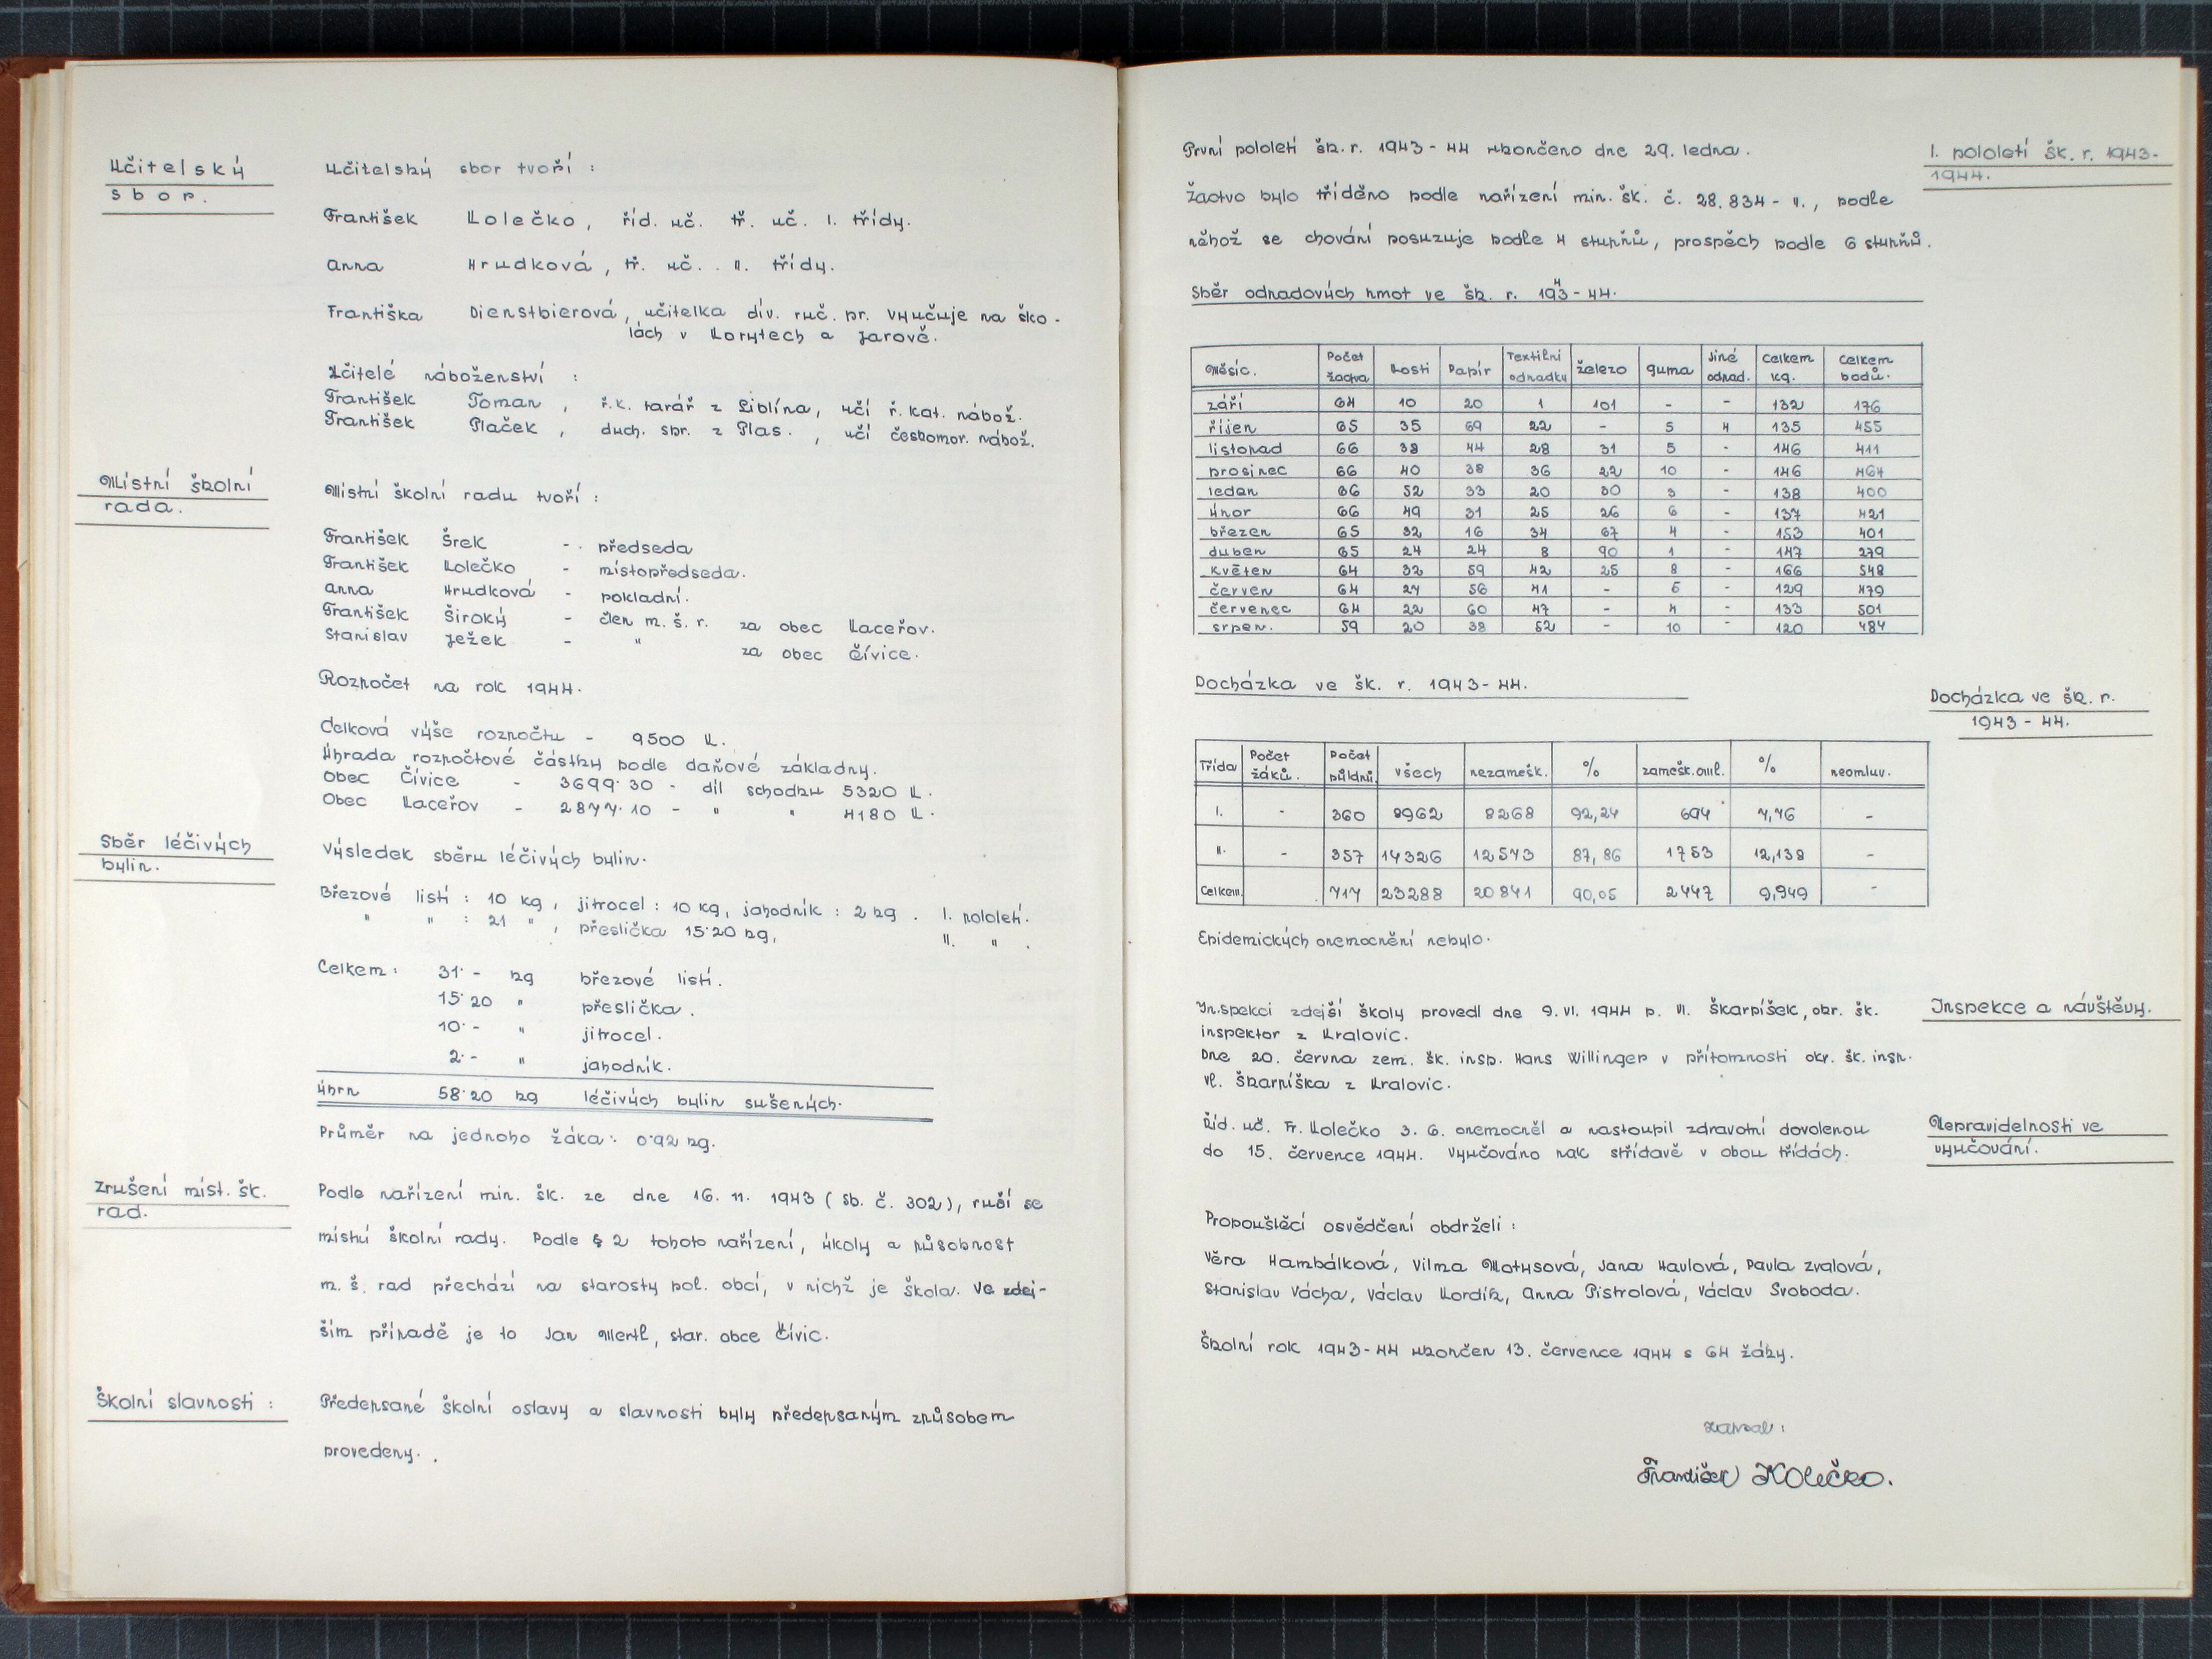 Učitelský
sbor.
Učitelský sbor tvoří :
František Kolečko, říd. uč. tř. uč. I. třídy.
Anna Hrudková, tř. uč. . II. třídy.
Františka Dienstbierová, učitelka dív. ruč. pr. vyučuje na ško-
lách v Korytech a Jarově.
Učitelé náboženství :
František Toman , ř.k. farář z Liblína, učí ř. kat. nábož.
František Plaček , duch. spr. z Plas. , učí českomor. nábož.
Místní školní
rada.
Místní školní radu tvoří :
František Šrek - předseda
František Kolečko - místopředseda.
Anna Hrudková - pokladní.
František Široký - člen m. š. r. za obec Kaceřov.
Stanislav Ježek - " za obec Čívice.
Rozpočet na rok 1944.
Celková výše rozpočtu - 9500 K.
Úhrada rozpočtové částky podle daňové základny.
Obec Čívice - 3699·30 - díl schodku 5320 K.
Obec Kaceřov - 2877·10 - " " 4180 K.
Sběr léčivých
bylin.
Výsledek sběru léčivých bylin.
Březové listí : 10 kg, jitrocel : 10 kg, jahodník : 2 kg . I. pololetí.
" " : 21 " , přeslička 15·20 kg, II. " .
Celkem : 31·- kg březové listí.
15·20 " přeslička .
10·- " jitrocel.
2·- " jahodník.
Úhrn 58·20 kg léčivých bylin sušených.
Průměr na jednoho žáka : 0·92 kg.
Zrušení míst. šk.
rad.
Podle nařízení min. šk. ze dne 16. 11. 1943 ( Sb. č. 302), ruší se
místní školní rady. Podle § 2 tohoto nařízení, úkoly a působnost
m. š. rad přechází na starosty pol. obcí, v nichž je škola. Ve zdej-
ším případě je to Jan Mertl, star. obce Čívic.
Školní slavnosti :
Předepsané školní oslavy a slavnosti byly předepsaným způsobem
provedeny. .
První pololetí šk. r. 1943 - 44 ukončeno dne 29. ledna .
I. pololetí šk. r. 1943-
1944.
Žactvo bylo tříděno podle nařízení min. šk. č. 28.834 - II., podle
něhož se chování posuzuje podle 4 stupňů, prospěch podle 6 stupňů.
Sběr odpadových hmot ve šk. r. 1943 - 44.
Měsíc. Počet žactva Kosti Papír Textilní odpadky Železo guma Jiné odpad. Celkem kg. Celkem bodů.
září 64 10 20 1 101 - - 132 176
říjen 65 35 69 22 - 5 4 135 455
listopad 66 38 44 28 31 5 - 146 411
prosinec 66 40 38 36 22 10 - 146 464
leden 66 52 33 20 30 3 - 138 400
únor 66 49 31 25 26 6 - 137 421
březen 65 32 16 34 67 4 - 153 401
duben 65 24 24 8 90 1 - 147 279
květen 64 32 59 42 25 8 - 166 548
červen 64 27 56 41 - 5 - 129 479
červenec 64 22 60 47 - 4 - 133 501
srpen. 59 20 38 52 - 10 - 120 484
Docházka ve šk. r. 1943 - 44.
Docházka ve šk. r.
1943 - 44.
Třída Počet žáků. Počet půldnů. všech nezamešk. % zamešk. oml. % neomluv.
I. - 360 8962 8268 92,24 694 7,76 -
II. - 357 14326 12573 87,86 1753 12,138 -
Celkem. 717 23288 20841 90,05 2447 9,949 -
Epidemických onemocnění nebylo.
Inspekci zdejší školy provedl dne 9. VI. 1944 p. Vl. Škarpíšek, okr. šk.
Inspekce a návštěvy.
inspektor z Kralovic.
Dne 20. června zem. šk. insp. Hans Willinger v přítomnosti okr. šk. insp.
Vl. Škarpíška z Kralovic.
Říd. uč. Fr. Kolečko 3. 6. onemocněl a nastoupil zdravotní dovolenou
do 15. července 1944. Vyučováno pak střídavě v obou třídách.
Nepravidelnosti ve
vyučování.
Propouštěcí osvědčení obdrželi :
Věra Hambálková, Vilma Motysová, Jana Havlová, Pavla Zvalová,
Stanislav Vácha, Václav Kordík, Anna Pistrolová, Václav Svoboda.
Školní rok 1943-44 ukončen 13. července 1944 s 64 žáky.
Zapsal :
František Kolečko.